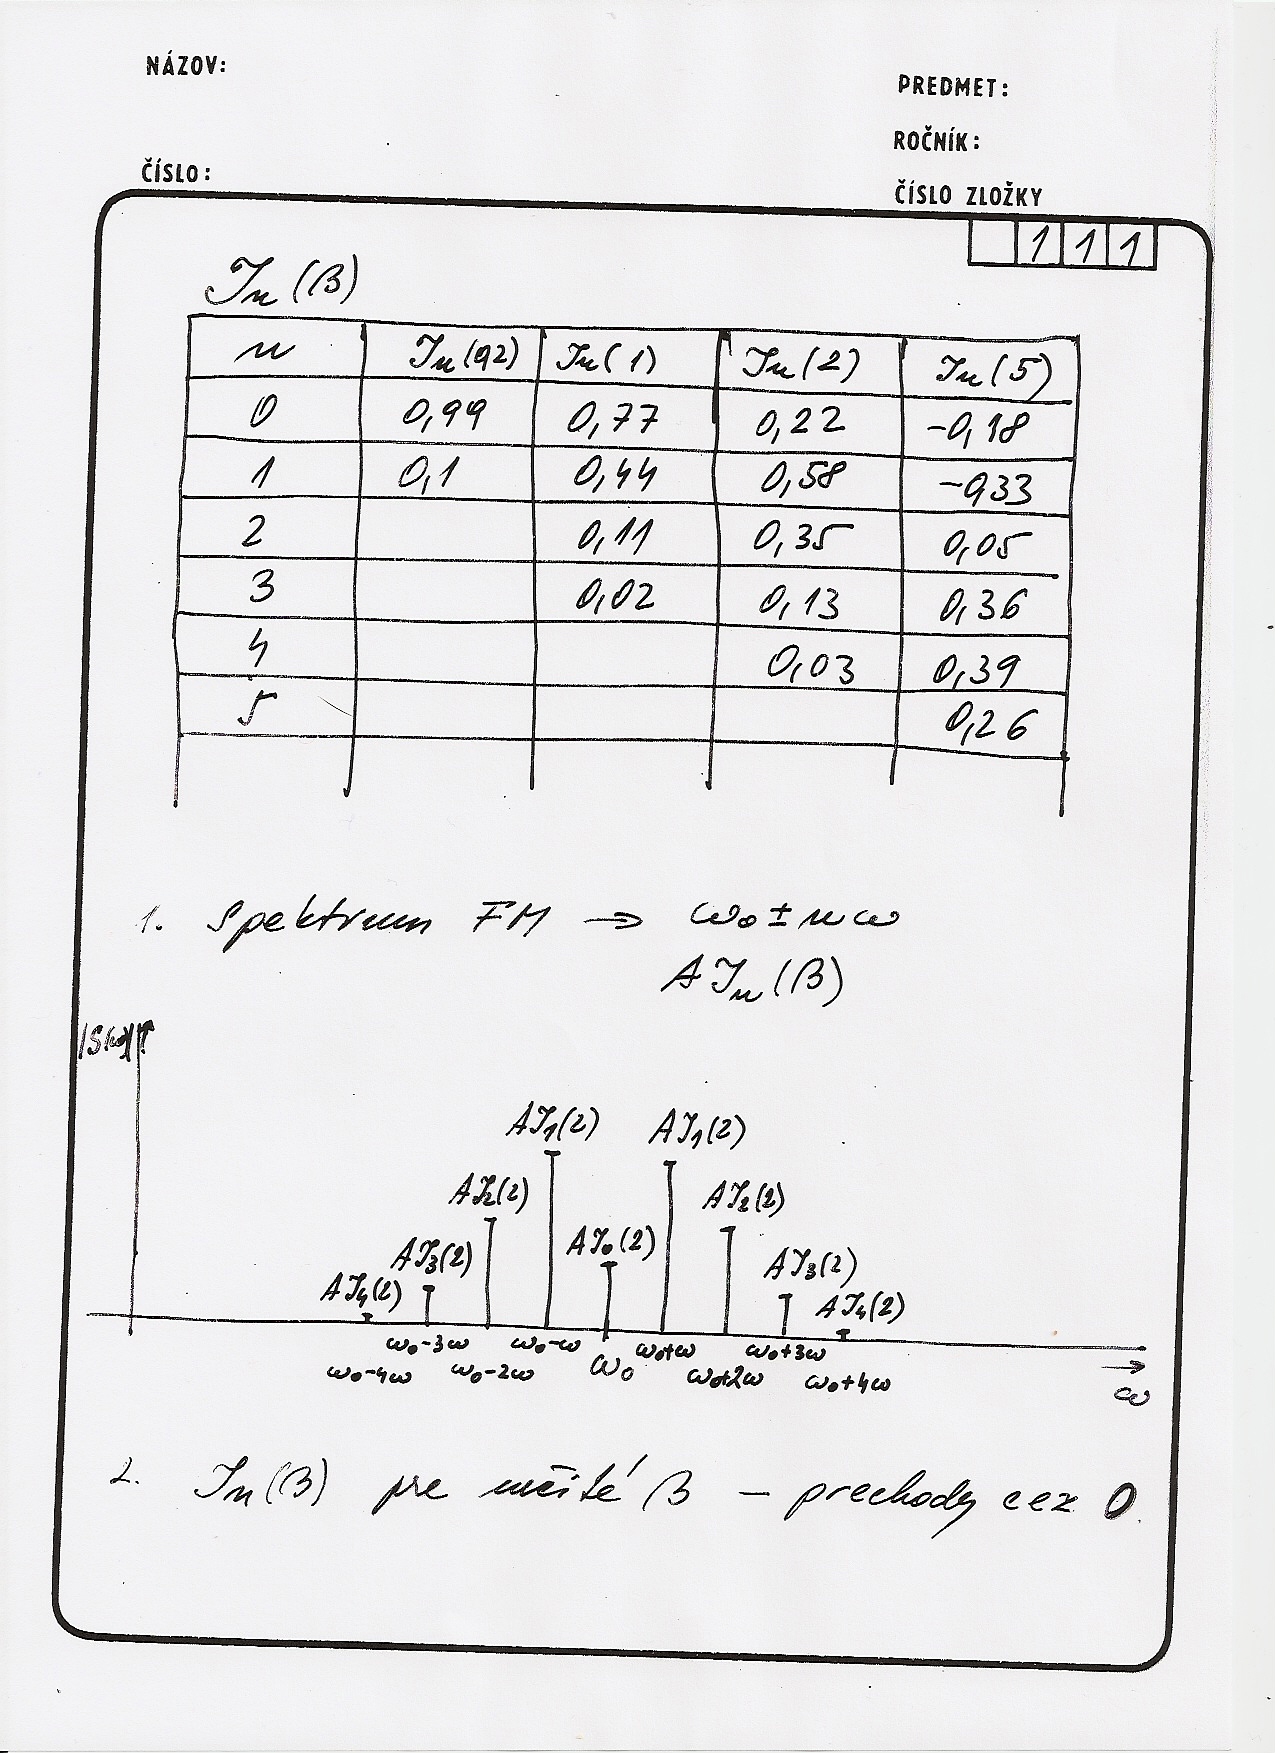 NÁZOV:
PREDMET:
ROČNÍK:
ČÍSLO:
ČÍSLO ZLOŽKY
1 1 1
Jn(β)
n Jn(0,2) Jn(1) Jn(2) Jn(5)
0 0,99 0,77 0,22 -0,18
1 0,1 0,44 0,58 -0,33
2 0,11 0,35 0,05
3 0,02 0,13 0,36
4 0,03 0,39
5 0,26
1. Spektrum FM → ω₀ ± nω
A Jn(β)
|S(ω)|
AJ₁(2) AJ₁(2)
AJ₂(2) AJ₂(2)
AJ₃(2) AJ₀(2) AJ₃(2)
AJ₄(2) AJ₄(2)
ω₀-3ω ω₀-ω ω₀+ω ω₀+3ω
ω₀-4ω ω₀-2ω ω₀ ω₀+2ω ω₀+4ω
→
ω
2. Jn(β) pre určité β – prechody cez 0